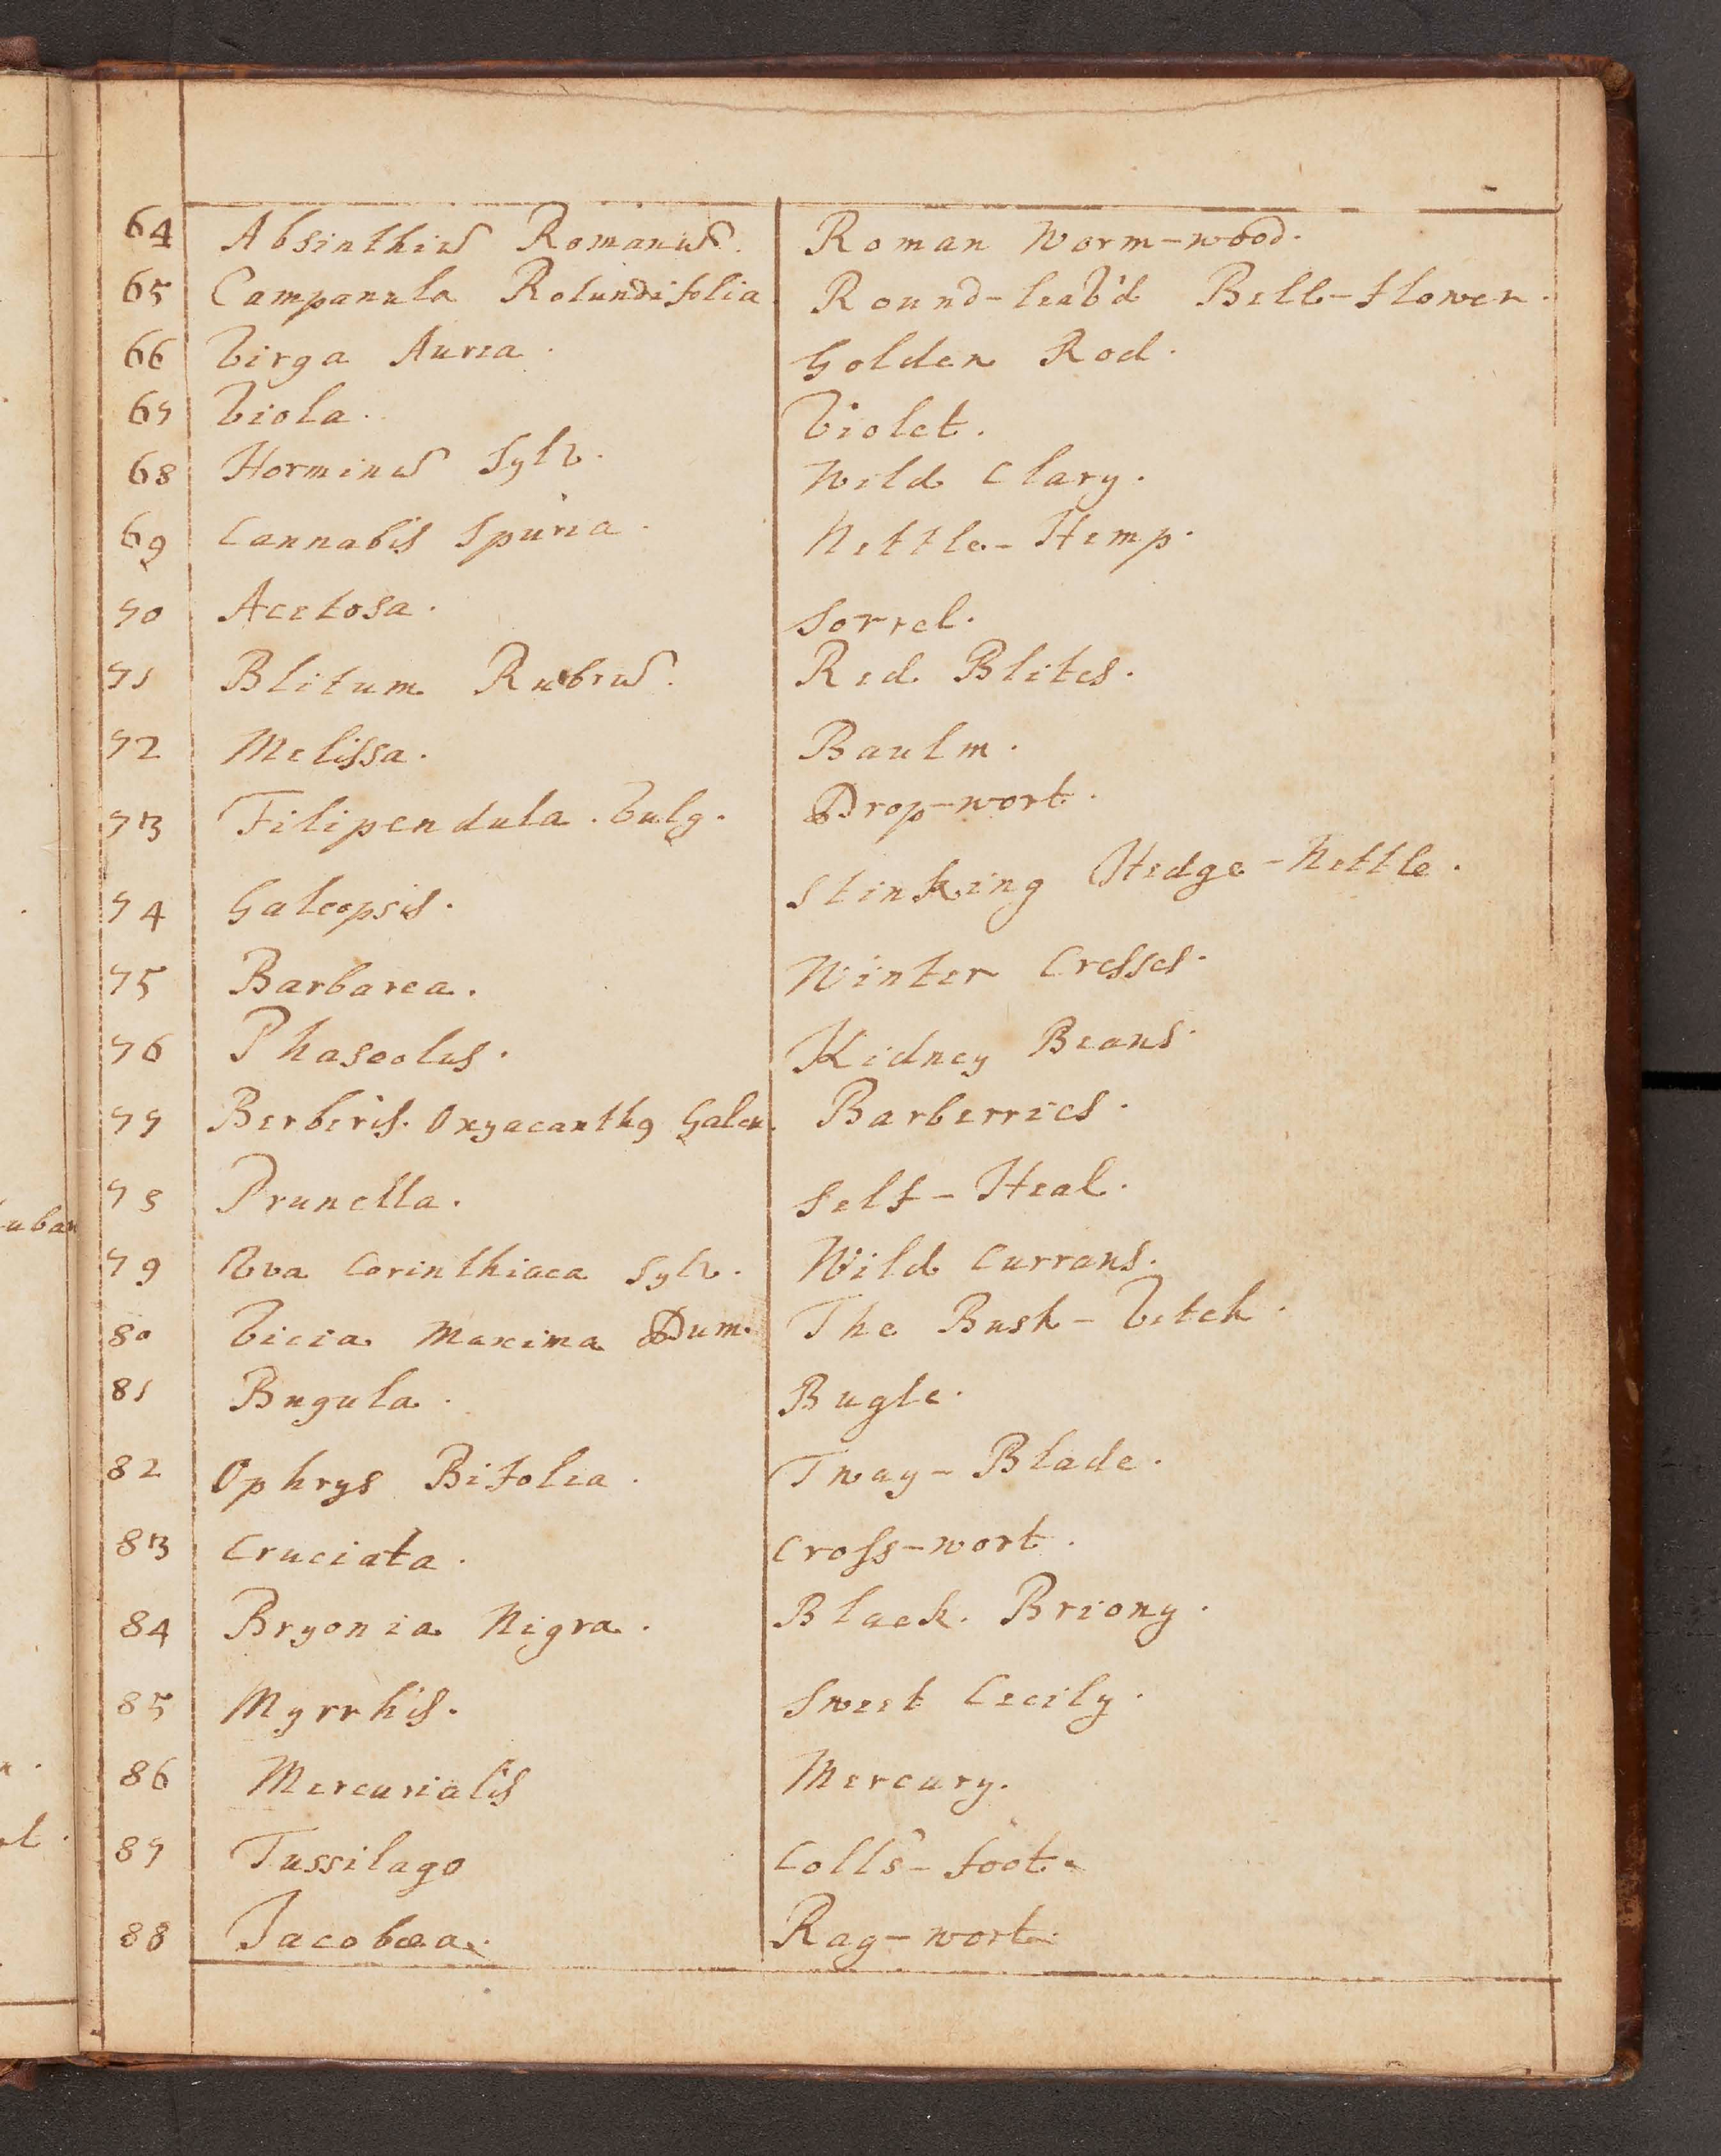 64 Absinthiũ Romanũ. Roman Worm-wood.
65 Campanula Rotundifolia. Round-leav'd Bell-flower.
66 Virga Aurea. Golden Rod.
67 Viola. Violet.
68 Horminũ Sylv. Wild Clary.
69 Cannabis Spuria. Nettle-Hemp.
70 Acetosa. Sorrel.
71 Blitum Rubrũ. Red Blites.
72 Melissa. Baulm.
73 Filipendula. Vulg. Drop-wort.
74 Galeopsis. Stinking Hedge-Nettle.
75 Barbarea. Winter Cresses.
76 Phaseolus. Kidney Beans.
77 Berberis. Oxyacanthą Galen. Barberries.
78 Prunella. Self-Heal.
79 Uva Corinthiaca Sylv. Wild Currans.
80 Vicia Maxima Dum. The Bush-Vetch.
81 Bugula. Bugle.
82 Ophrys Bifolia. Tway-Blade.
83 Cruciata. Cross-wort.
84 Bryonia Nigra. Black. Briony.
85 Myrrhis. Sweet Cecily.
86 Mercurialis Mercury.
87 Tussilago Colt's-foot.
88 Jacobæa. Rag-wort.